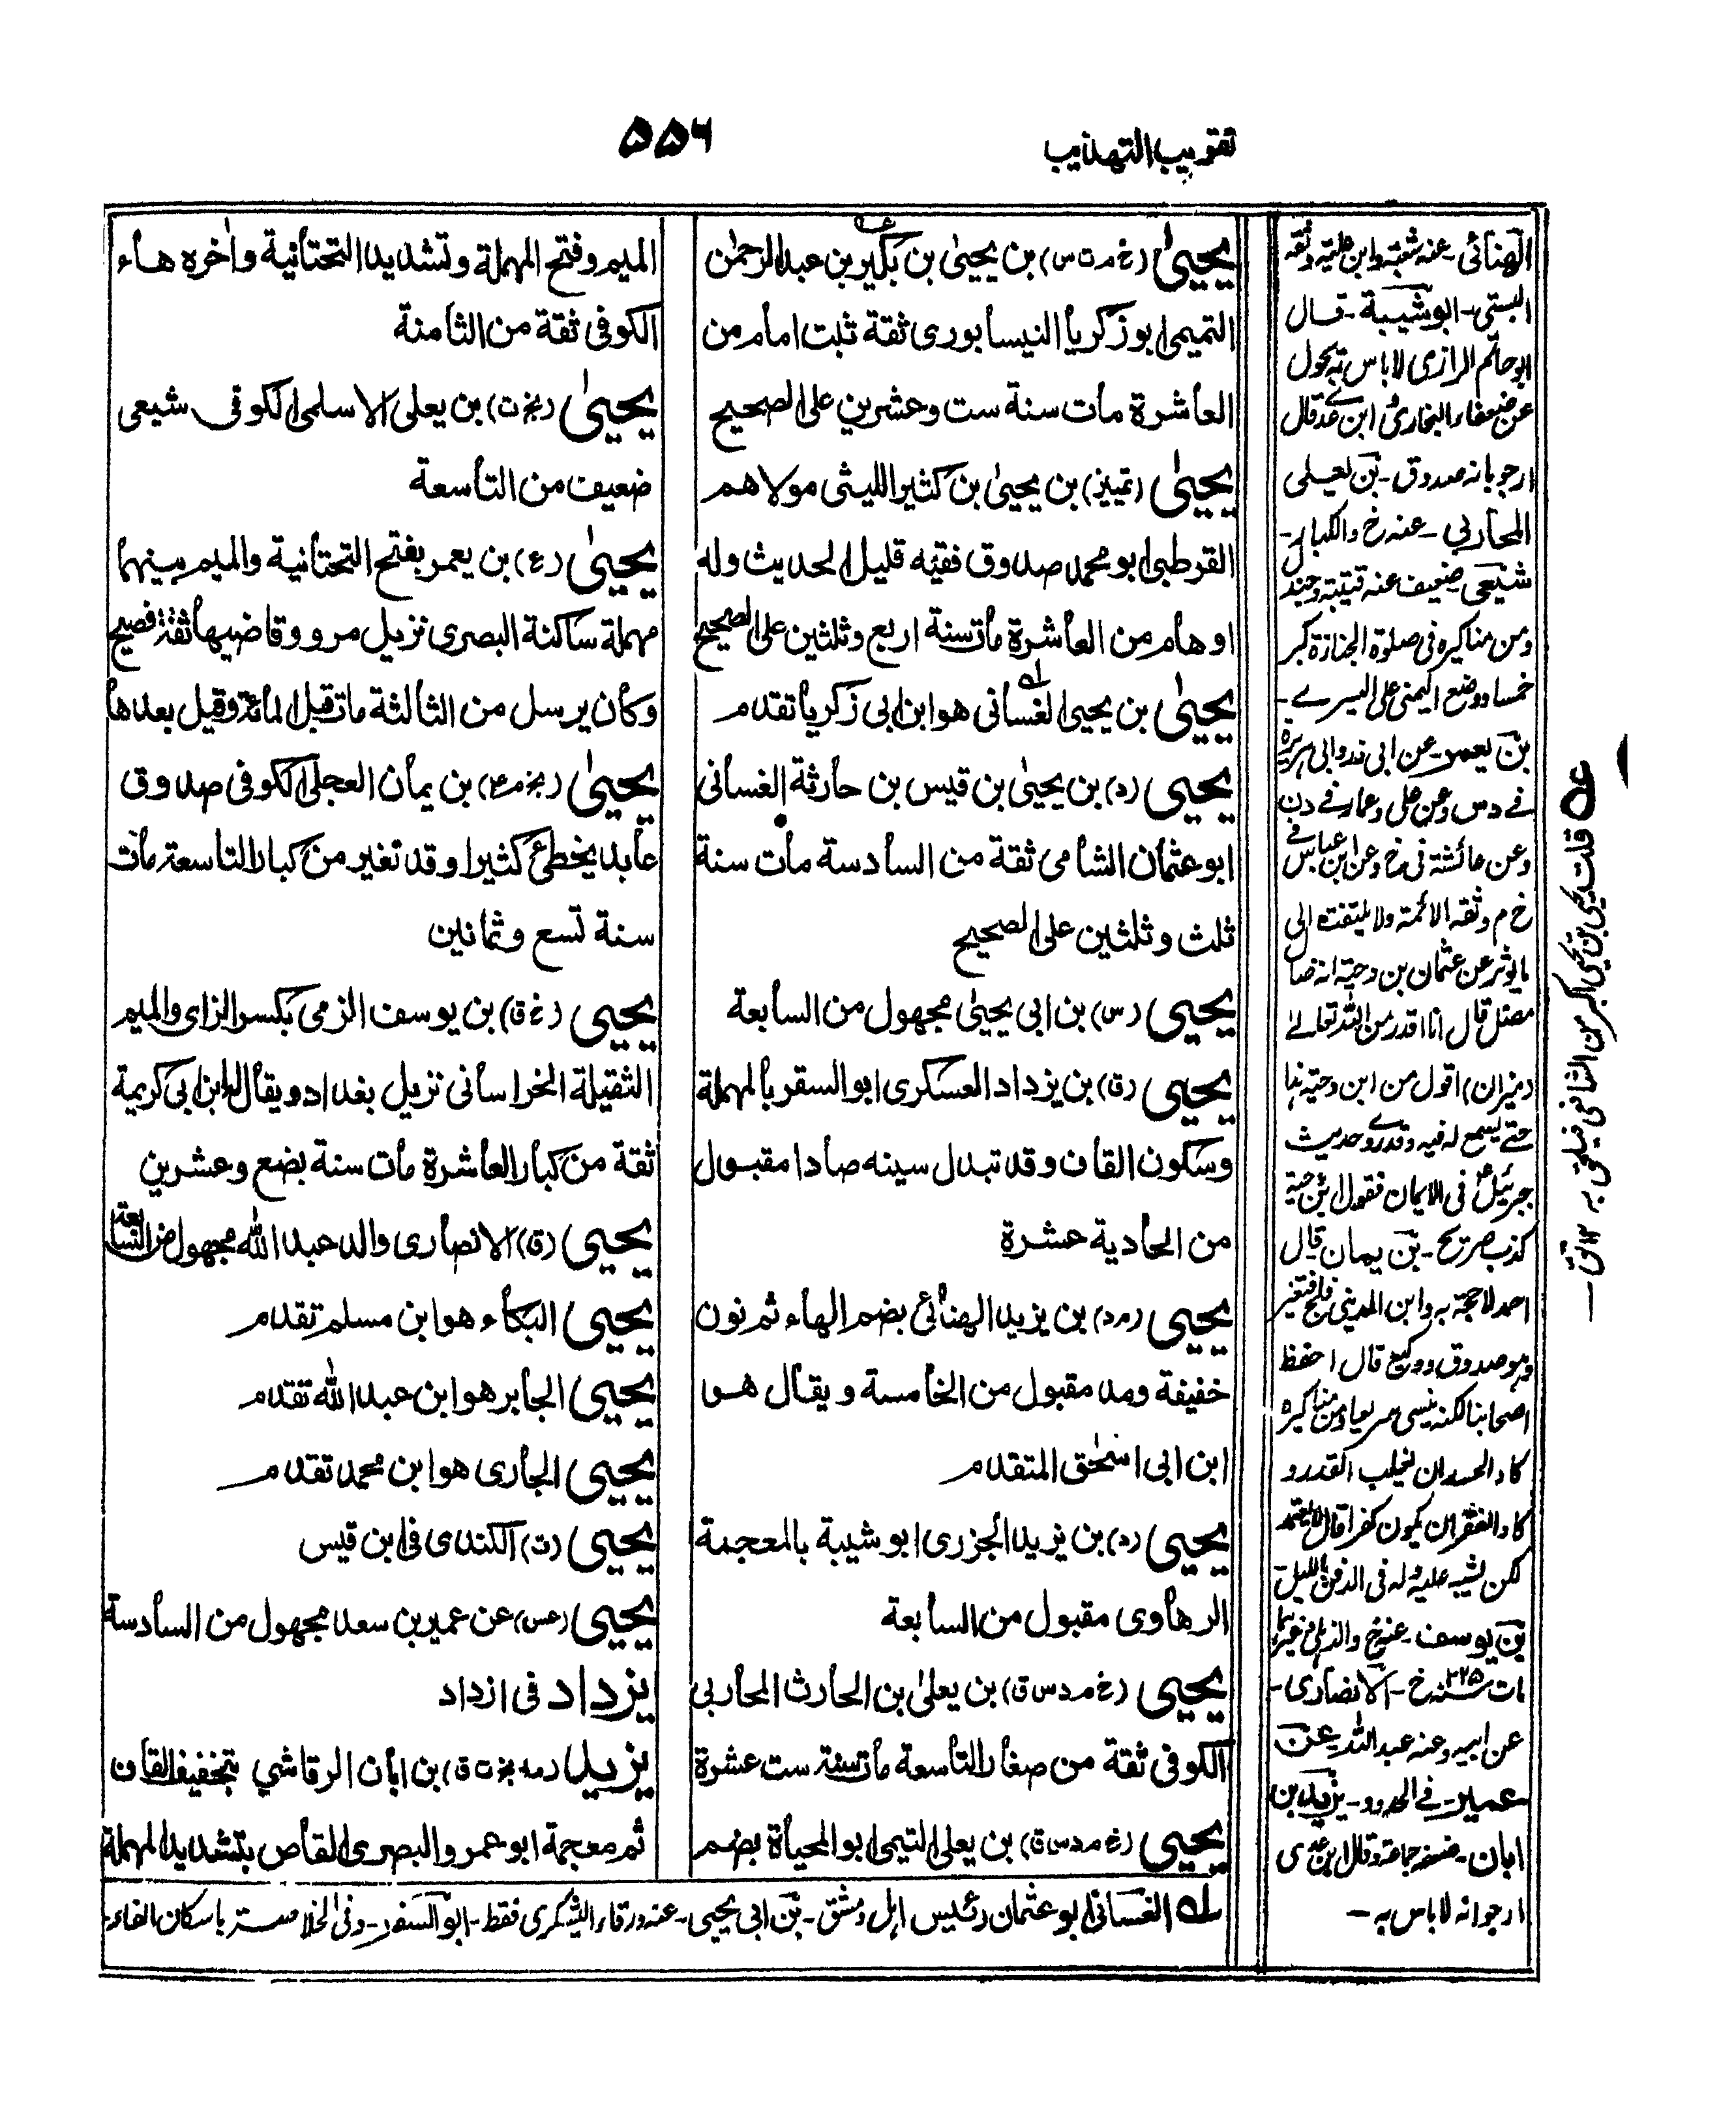 تقريب التهذيب
۵۵۶
يحيىٰ (خ م ت س) بن يحيىٰ بن بكير بن عبد الرحمٰن
التميمي ابو زكريا النيسابوري ثقة ثبت امام من
العاشرة مات سنة ست وعشرين على الصحيح
يحيىٰ (تمييز) بن يحيىٰ بن كثير الليثي مولاهم
القرطبي ابو محمد صدوق فقيه قليل الحديث وله
اوهام من العاشرة مات سنة اربع وثلثين على الصحيح
يحيىٰ بن يحيى الغساني هو ابن ابي زكريا تقدم
يحيى (د) بن يحيىٰ بن قيس بن حارثة الغساني
ابو عثمان الشامي ثقة من السادسة مات سنة
ثلث وثلثين على الصحيح
يحيى (س) بن ابي يحيىٰ مجهول من السابعة
يحيى (ق) بن يزداد العسكري ابو السقر بالمهملة
وسكون القاف وقد تبدل سينه صادا مقبول
من الحادية عشرة
يحيى (م د) بن يزيد الهنائي بضم الهاء ثم نون
خفيفة ومد مقبول من الخامسة ويقال هو
ابن ابي اسحٰق المتقدم
يحيى (د) بن يزيد الجزري ابو شيبة بالمعجمة
الرهاوي مقبول من السابعة
يحيى (خ م د س ق) بن يعلىٰ بن الحارث المحاربي
الكوفي ثقة من صغار التاسعة مات سنة ست عشرة
يحيى (خ م د س ق) بن يعلى التيمي ابو المحياة بضم
الميم وفتح المهملة وتشديد التحتانية واٰخره هاء
الكوفي ثقة من الثامنة
يحيىٰ (بخ ت) بن يعلى الاسلمي الكوفي شيعي
ضعيف من التاسعة
يحيىٰ (ع) بن يعمر بفتح التحتانية والميم بينهما
مهملة ساكنة البصري نزيل مرو وقاضيها ثقة فصيح
وكان يرسل من الثالثة مات قبل المائة وقيل بعدها
يحيىٰ (بخ م ع) بن يمان العجلي الكوفي صدوق
عابد يخطئ كثيرا وقد تغير من كبار التاسعة مات
سنة تسع وثمانين
يحيى (خ ق) بن يوسف الزمي بكسر الزاي والميم
الثقيلة الخراساني نزيل بغداد ويقال له ابن ابي كريمة
ثقة من كبار العاشرة مات سنة بضع وعشرين
يحيى (ق) الانصاري والد عبد الله مجهول من
يحيى البكاء هو ابن مسلم تقدم
يحيى الجابر هو ابن عبد الله تقدم
يحيى الجاري هو ابن محمد تقدم
يحيى (ت) الكندي في ابن قيس
يحيى (عس) عن عمير بن سعد مجهول من السادسة
يزداد في ازداد
يزيد ( بخ ت ق) بن ابان الرقاشي بتخفيف القاف
ثم معجمة ابو عمرو البصري القاص بتشديد المهملة
له الغساني ابو عثمان رئيس اهل دمشق - بن ابي يحيى - عنه ورقاء اليشكري فقط - ابو السفر - وفي الخلاصة باسكان الفاء -
الهنائي - عنه شعبة وابن علية وثقه
البستي - ابو شيبة - قال
ابو حاتم الرازي لا باس به يحول
عن ضعفاء البخاري ابن عدي قال
ارجو انه صدوق - بن يعلى
المحاربي - عنه خ والكبار -
شيعي ضعيف عنه قتيبة وجندل
ومن مناكيره في صلوة الجنازة كبر
خمسا ووضع اليمنى على اليسرى -
بن يعمر - عن ابي ذر وابي هريرة
في د س وعن علي وعمار في د ن
وعن عائشة في خ وعن ابن عباس في
خ م وثقه الائمة ولا يلتفت الى
ما يوثر عن عثمان بن دحية انه ضا
مضل قال انا اقدر من الله تعالى
(ميزان) اقول من ابن دحية هذا
حتى يسمع له فيه وقد روى حديث
جبرئيل في الايمان فقول ابن دحية
كذب صريح - بن يمان قال
احمد لا حجة به وابن المديني فلج فتغير
وهو صدوق ووكيع قال احفظ
اصحابنا لكنه نسي سريعا ومن مناكيره
كاد الحسد ان يغلب القدر و
كاد الفقر ان يكون كفرا قال
لكن يشبه عليه وله في الدفن بالليل
بن يوسف - عنه خ والذهلي
مات سنة ۲۲۵ خ - الانصاري -
عن ابيه وعنه عبد الله - عن
عمير - في الحدود - يزيد بن
ابان - ضعفه جماعة وقال ابن عدي
ارجو انه لا باس به -
عه قلت يحيى بن يحيى اكبر من الشافعي فيلحق به ۱۲ تق -